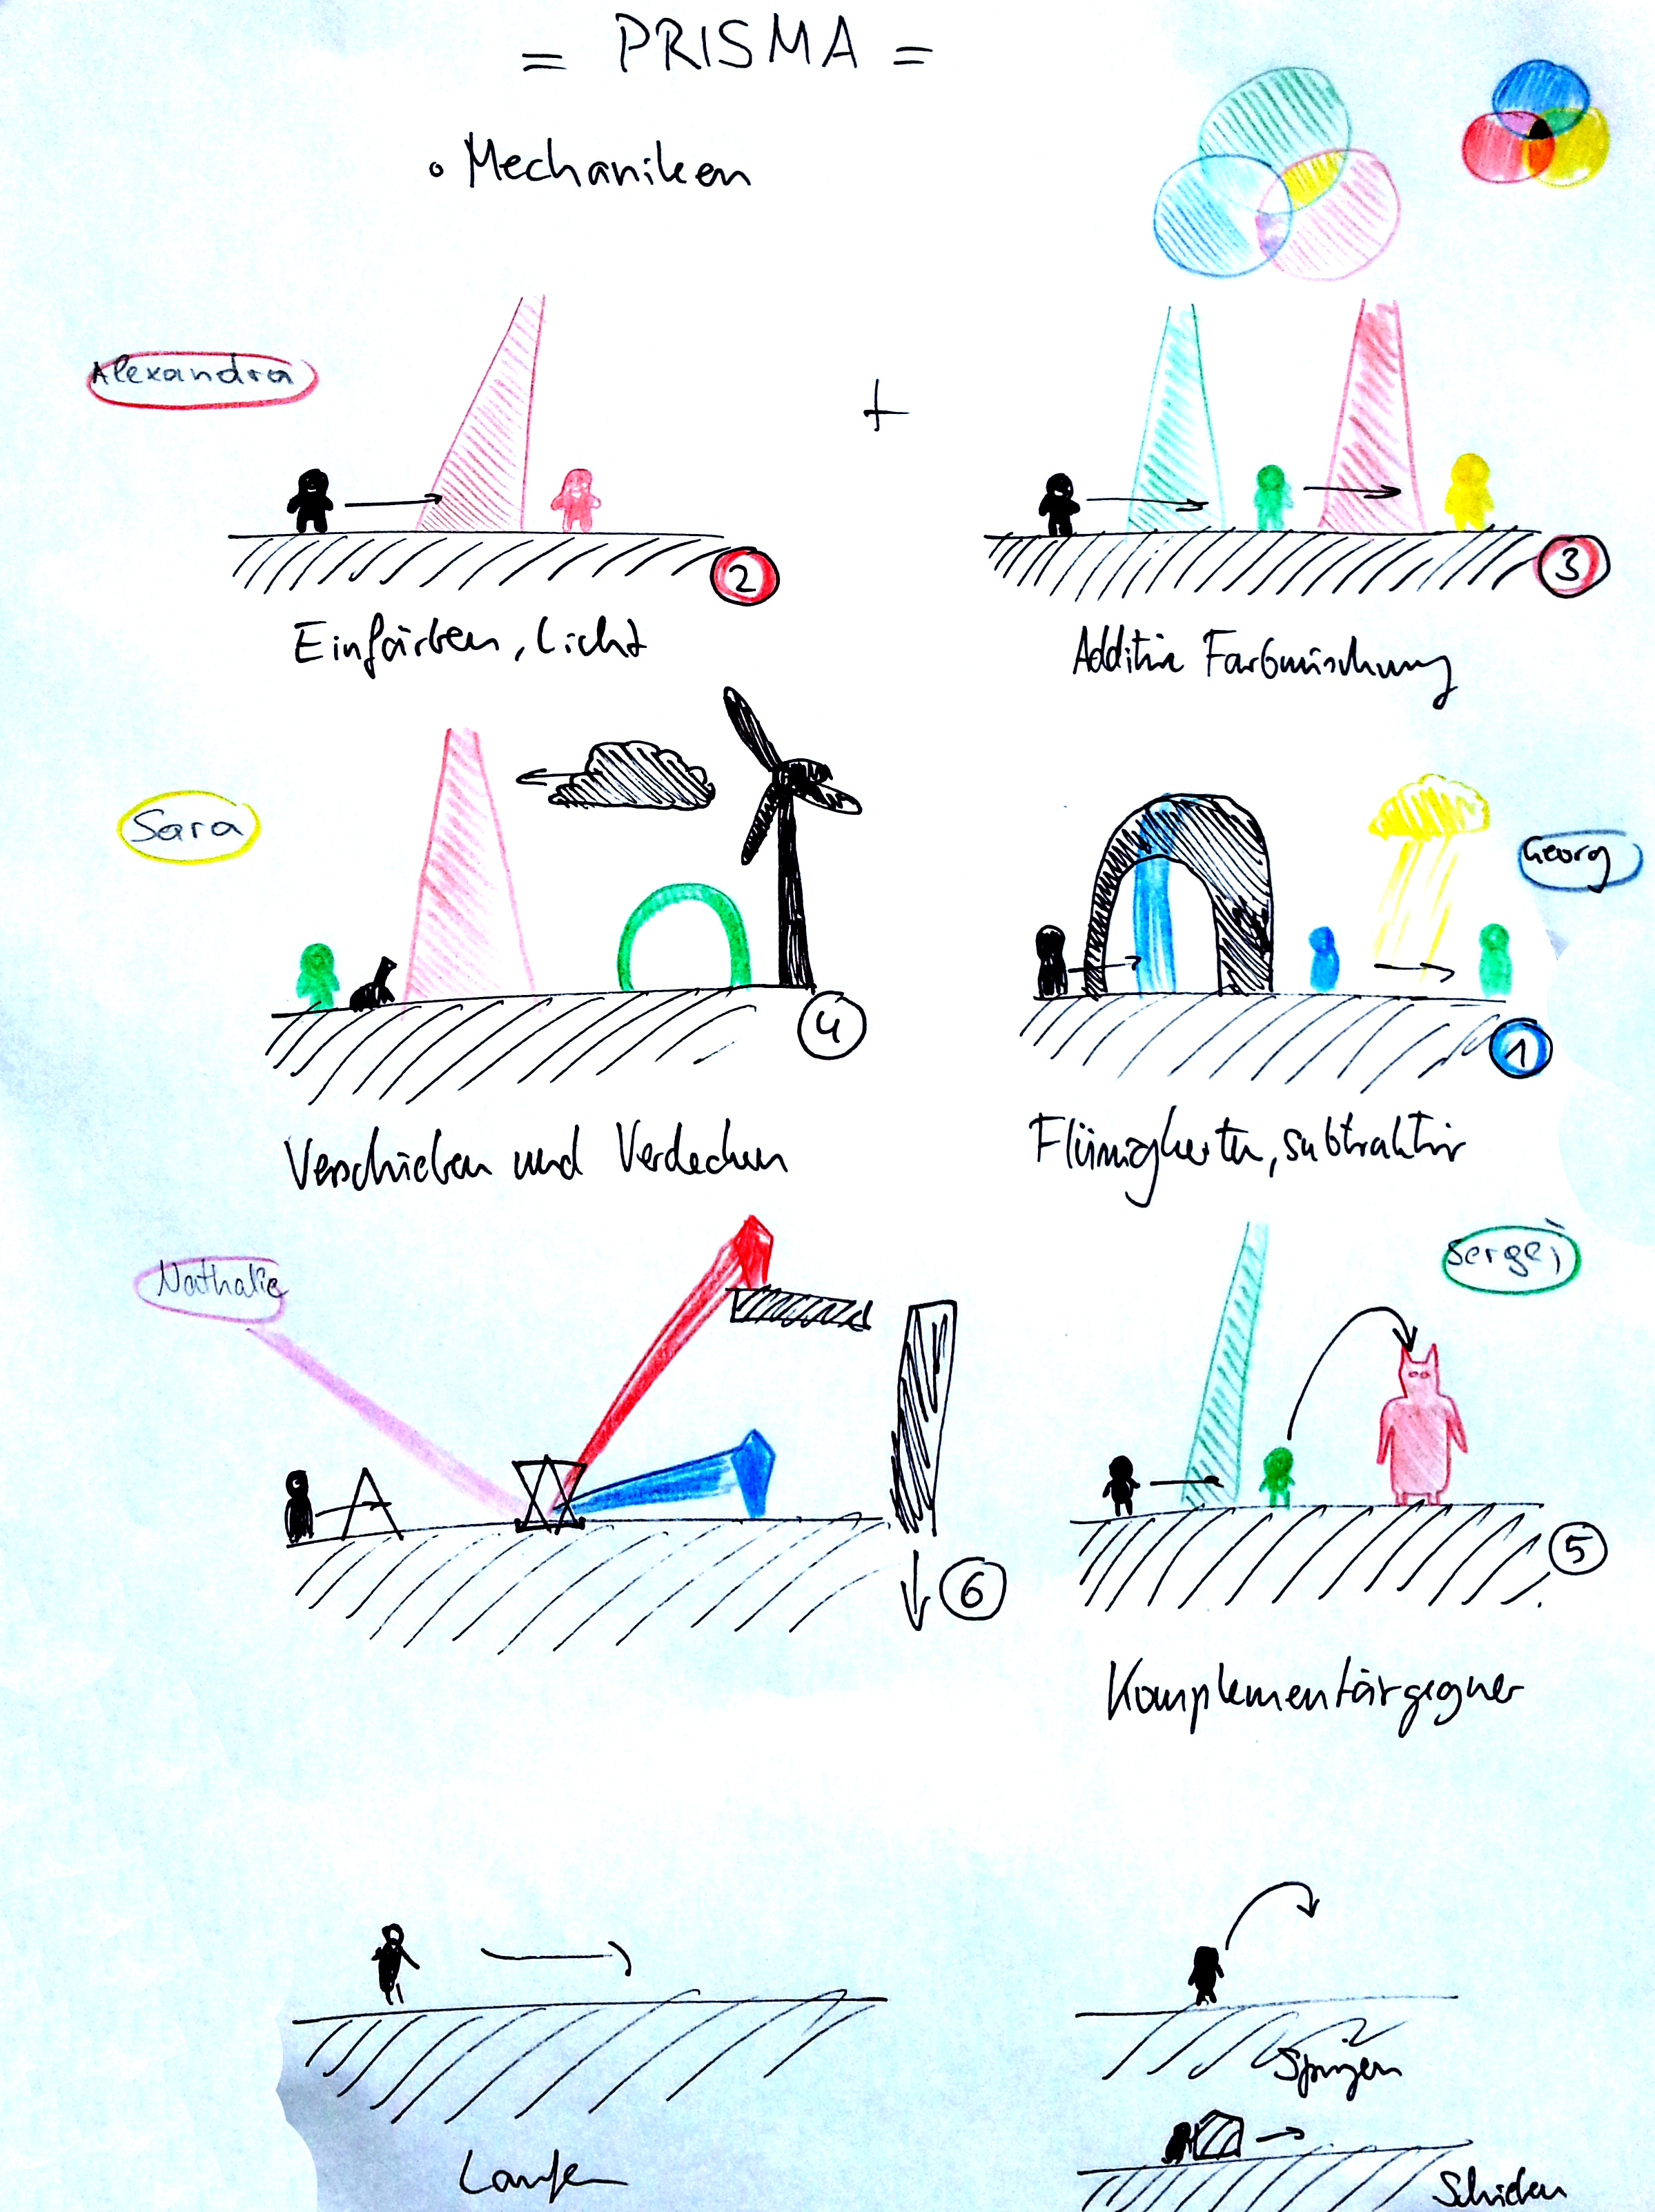 = PRISMA =
• Mechaniken
Alexandra
+
2
3
Einfärben, Licht
Additive Farbmischung
Sara
Georg
4
1
Verschieben und Verdecken
Flüssigkeiten, subtraktiv
Nathalie
Sergej
6
5
Komplementärgegner
Springen
Laufen
Schieben